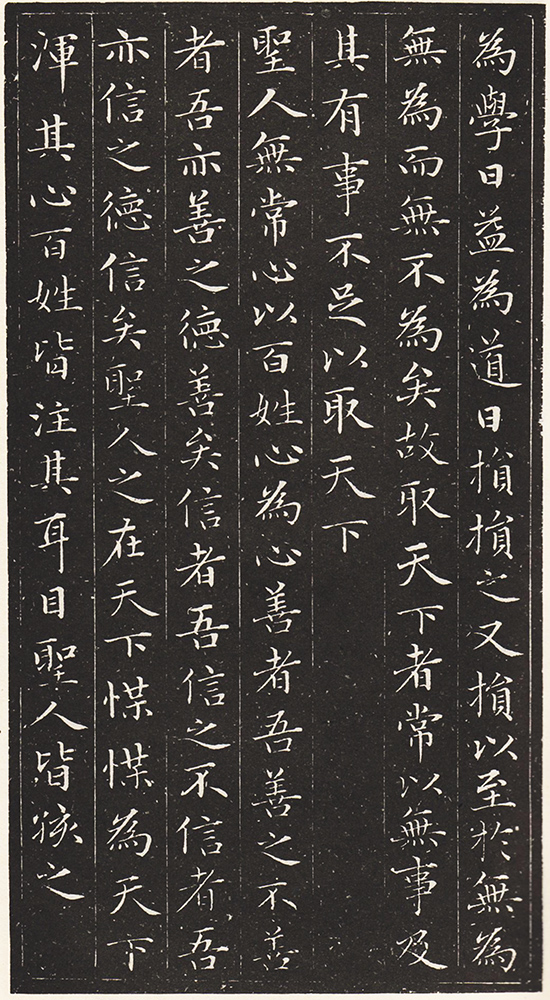 為學日益為道日損損之又損以至於無為
無為而無不為矣故取天下者常以無事及
其有事不足以取天下
聖人無常心以百姓心為心善者吾善之不善
者吾亦善之德善矣信者吾信之不信者吾
亦信之德信矣聖人之在天下惵惵為天下
渾其心百姓皆注其耳目聖人皆孩之